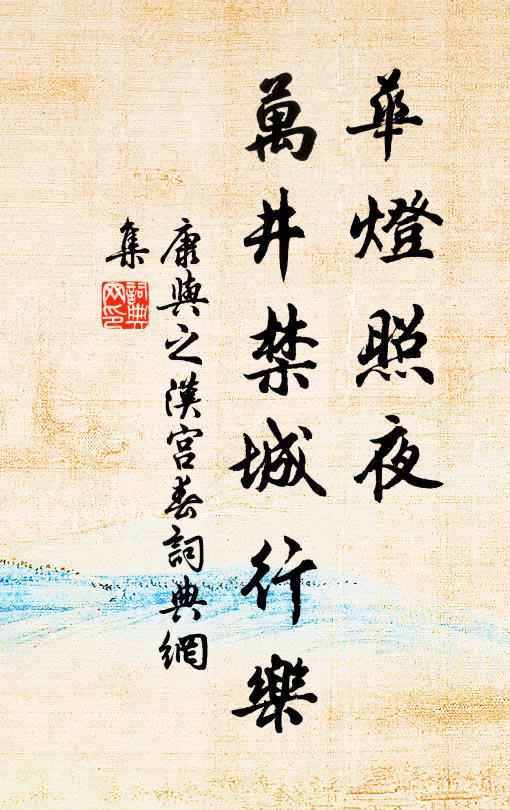 華燈照夜
萬井禁城行樂
康與之漢宮春詞典網
集
詞典
网印